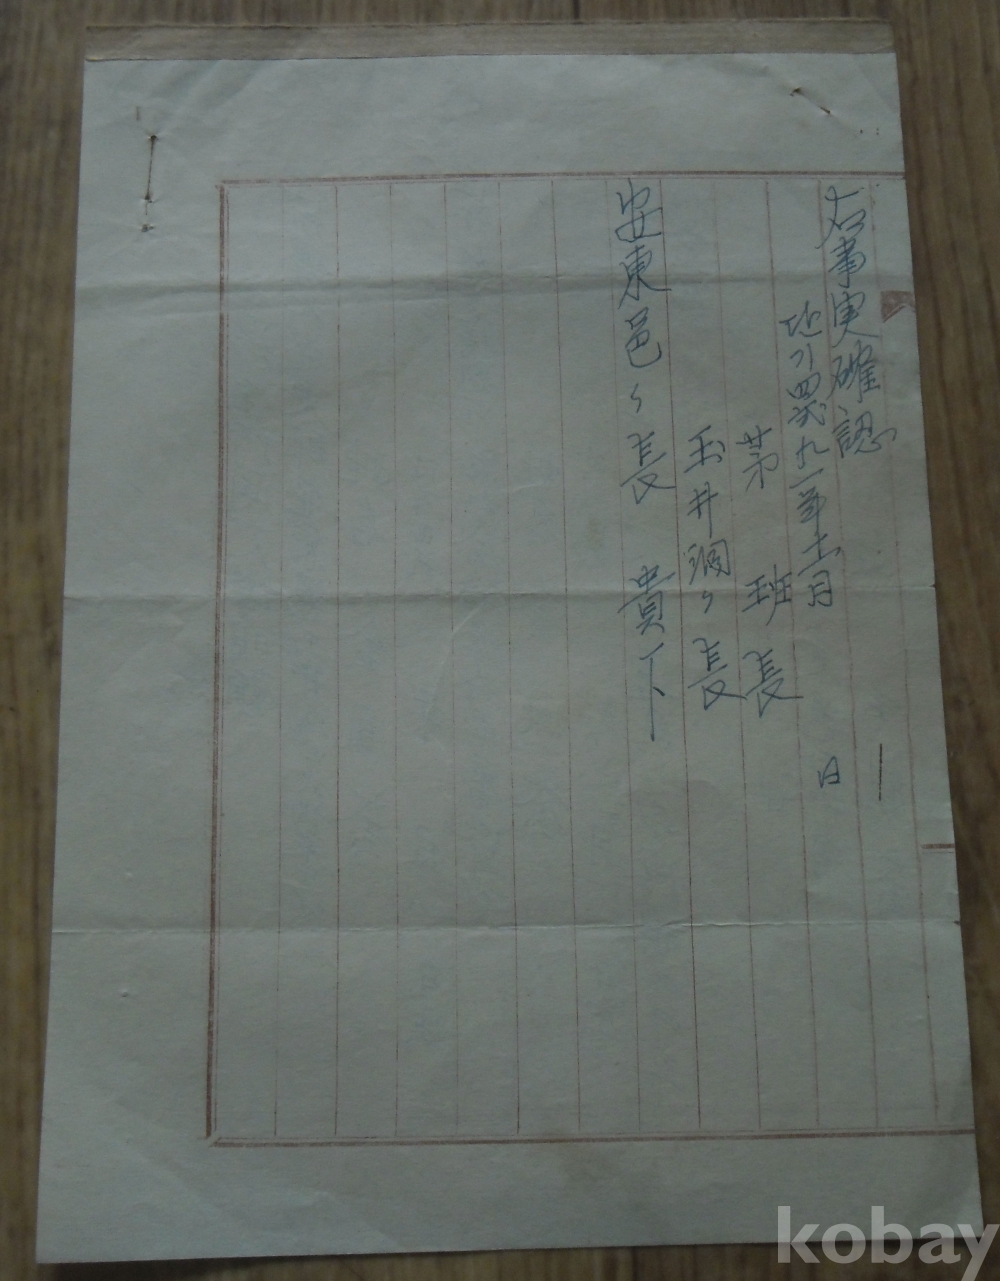 右事実確認
단기四弐九一年十一月 日
第 班長
玉井洞々長
安東邑々長 貴下
kobay